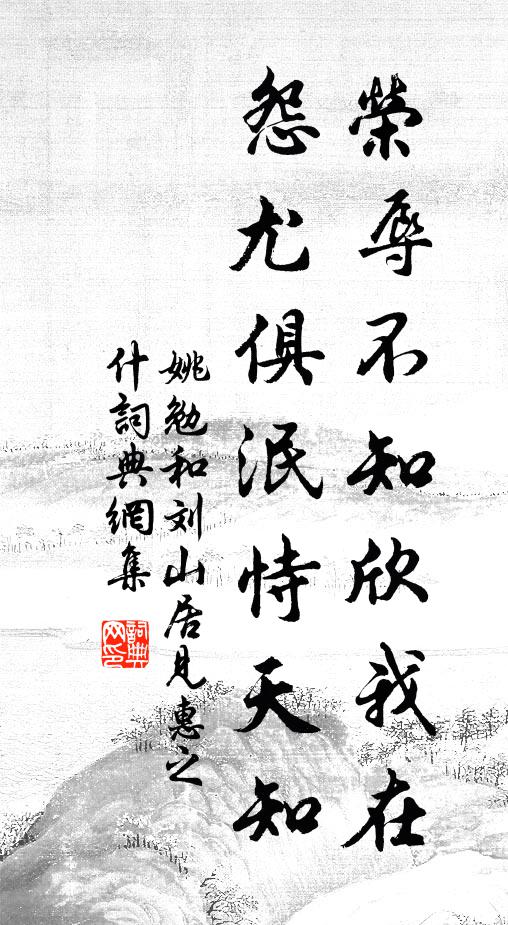 榮辱不知欣我在
怨尤俱泯恃天知
姚勉和刘山居見惠之
什詞典網集
詞典
网印